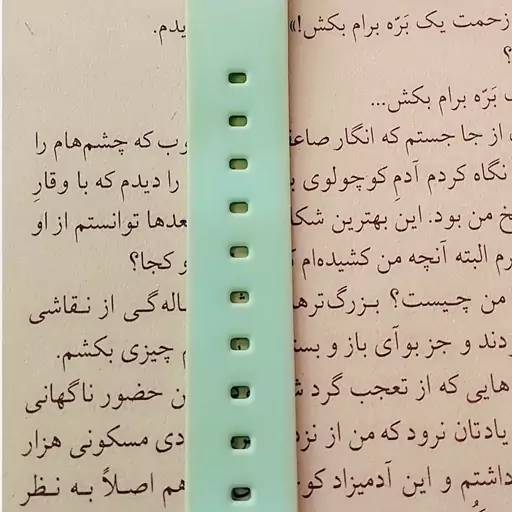 زحمت یک بَرّه برام بکش!» یدم.
؟
بَرّه برام بکش...
از جا جستم که انگار صاعق وب که چشم‌هام را
نگاه کردم آدمِ کوچولوی را دیدم که با وقارِ
من بود. این بهترین شکا بعدها توانستم از او
البته آنچه من کشیده‌ام و کجا؟
من چیست؟ بزرگ‌ترها ساله‌گی از نقاشی
و جز بوآی باز و بست چیزی بکشم.
هایی که از تعجب گرد حضور ناگهانی
یادتان نرود که من از نزد مسکونی هزار
داشتم و این آدمیزاد کو هم اصلاً به نظر